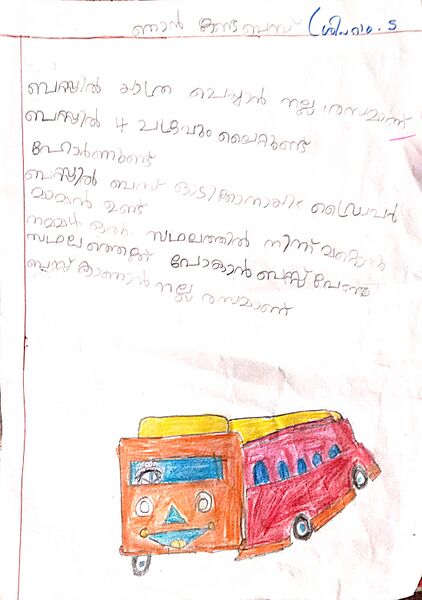 ഞാൻ കണ്ട ബസ് (ശിവദ. S
ബസ്സിൽ യാത്ര ചെയ്യാൻ നല്ല രസമാണ്
ബസ്സിൽ 4 ചക്രവും ലൈറ്റുണ്ട്
ഹോർണുണ്ട്
ബസ്സിൽ ബസ് ഓടിക്കാനായി ഡ്രൈവർ
മാമൻ ഉണ്ട്
നമ്മൾ ഒരു സ്ഥലത്തിൽ നിന്ന് മറ്റൊരു
സ്ഥലത്തേക്ക് പോകാൻ ബസ്സ് വേണം
ബസ്സ് കാണാൻ നല്ല രസമാണ്